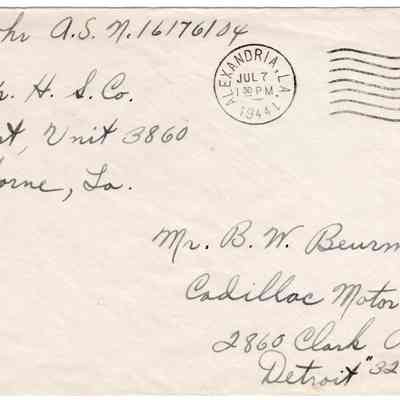 hr A.S.N. 16176104
H. S. Co.
t, Unit 3860
orne, La.
ALEXANDRIA, LA.
JUL 7
1 30 PM
1944
Mr. B. W. Beurm
Cadillac Motor
2860 Clark A
Detroit "32